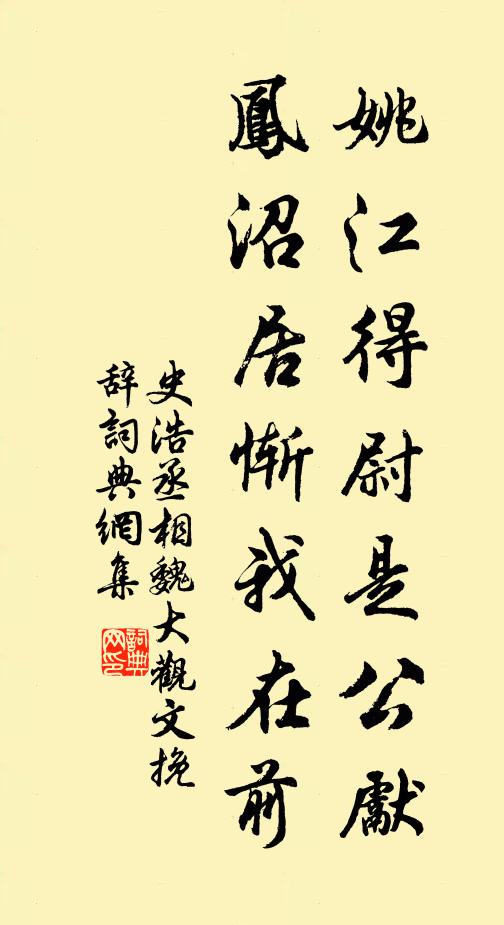 姚江得尉是公獻
鳳沼居慚我在前
史浩丞相魏大觀文挽
辞詞典網集
詞典
网印